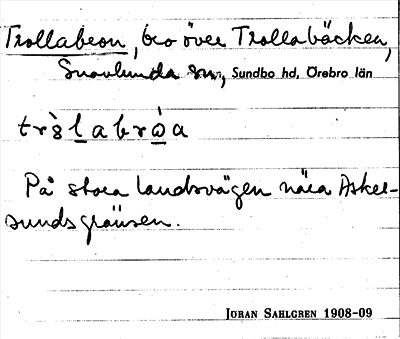 Trollabron, bro över Trollabäcken,
Snavlunda sn, Sundbo hd, Örebro län
På stora landsvägen nära Asker-
sundsgränsen.
JORAN SAHLGREN 1908-09